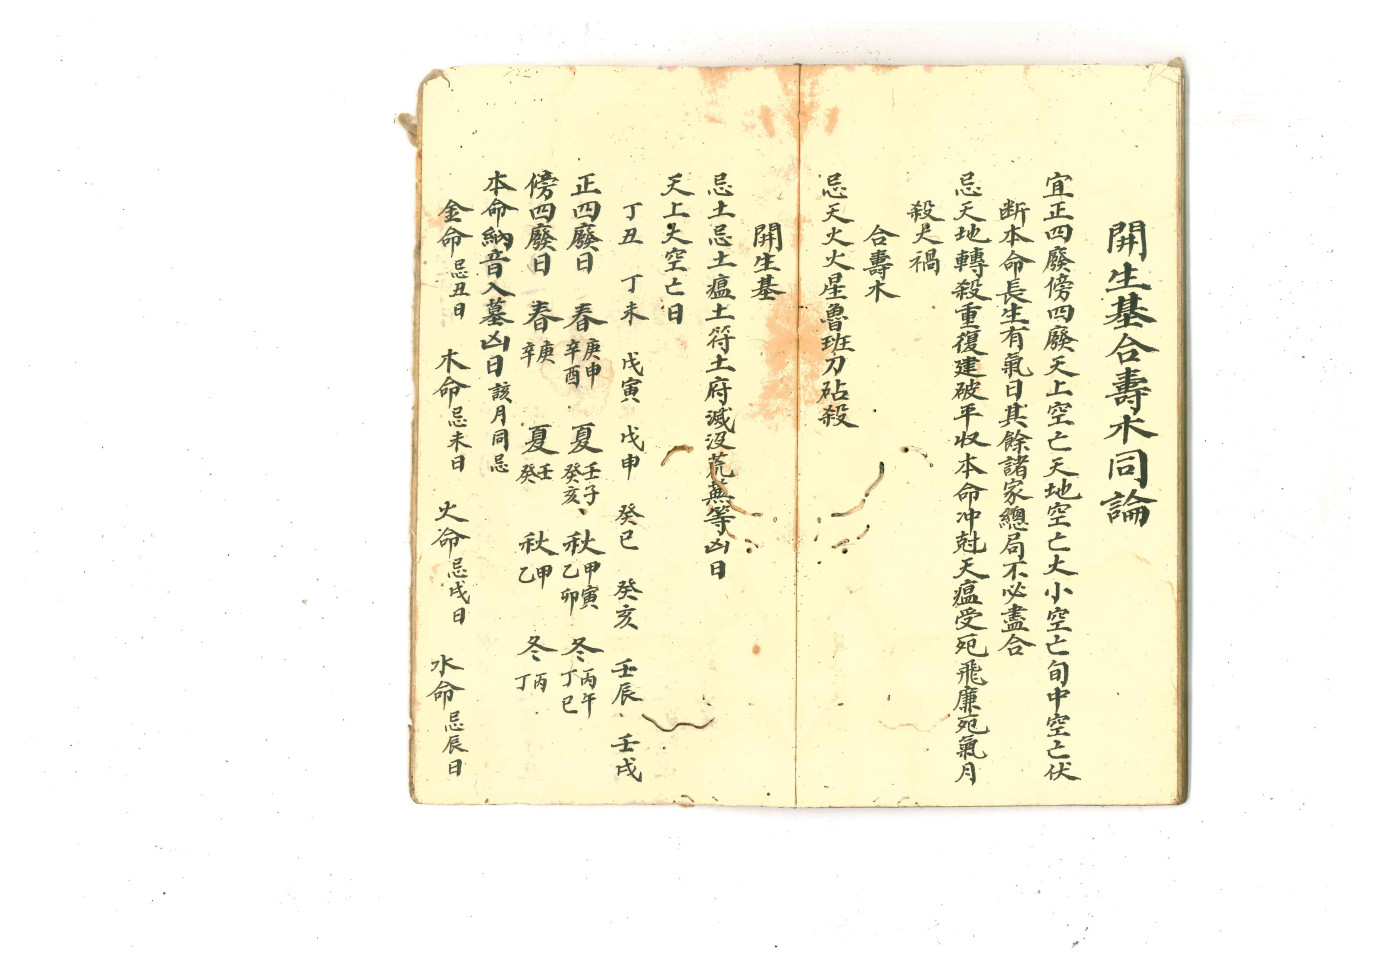 開生基合壽木同論
宜正四廢傍四廢天上空亡天地空亡大小空亡旬中空亡伏
断本命長生有氣日其餘諸家總局不必盡合
忌天地轉殺重復建破平收本命冲尅天瘟受死飛廉死氣月
殺火禍
合壽木
忌天火火星魯班刀砧殺
開生基
忌土忌土瘟土符土府滅没荒蕪等凶日
天上大空亡日
丁丑 丁未 戊寅 戊申 癸巳 癸亥 壬辰 壬戌
正四廢日 春庚申辛酉 夏壬子癸亥 秋甲寅乙卯 冬丙午丁巳
傍四廢日 春庚辛 夏壬癸 秋甲乙 冬丙丁
本命納音入墓凶日該月同忌
金命忌丑日 木命忌未日 火命忌戌日 水命忌辰日